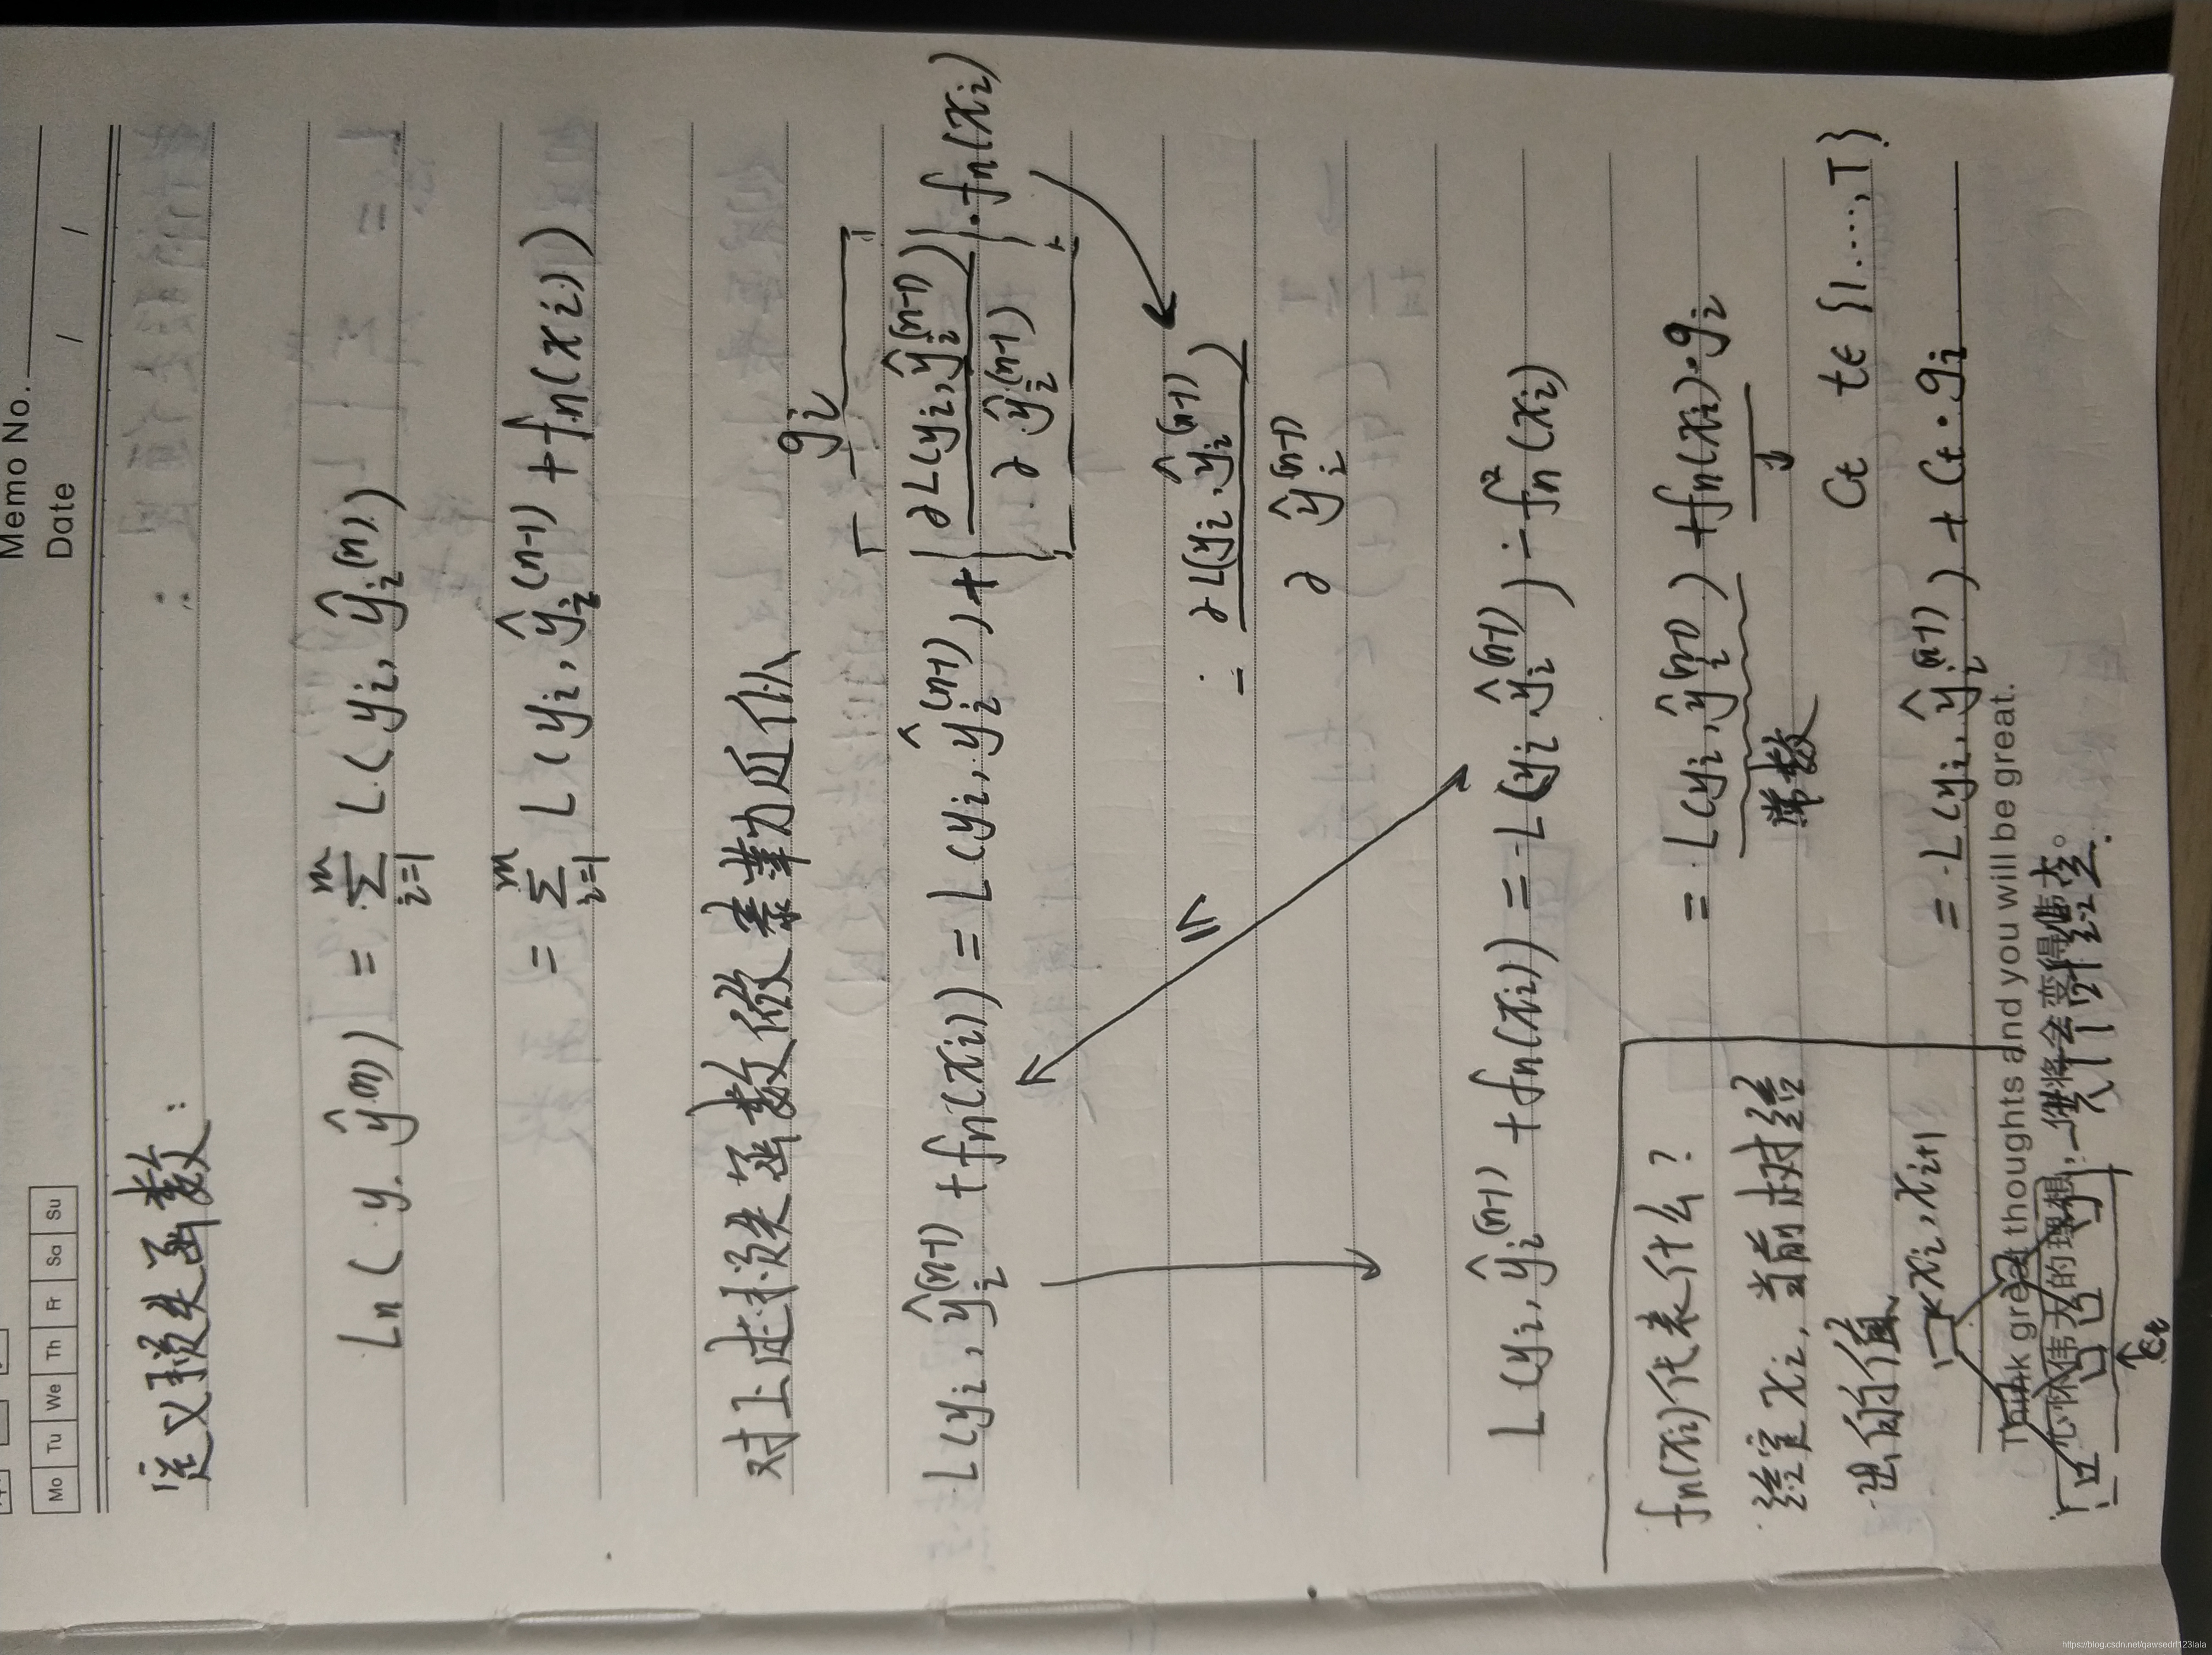 Memo No.
Mo Tu We Th Fr Sa Su
Date / /
定义损失函数:
Ln(y, ŷ⁽ⁿ⁾) = Σᵢ₌₁ᵐ L(yᵢ, ŷᵢ⁽ⁿ⁾)
= Σᵢ₌₁ᵐ L(yᵢ, ŷᵢ⁽ⁿ⁻¹⁾ + fn(xᵢ))
对上述损失函数做泰勒近似
gᵢ
L(yᵢ, ŷᵢ⁽ⁿ⁻¹⁾ + fn(xᵢ)) = L(yᵢ, ŷᵢ⁽ⁿ⁻¹⁾) + ∂L(yᵢ, ŷᵢ⁽ⁿ⁻¹⁾) / ∂ŷᵢ⁽ⁿ⁻¹⁾ · fn(xᵢ)
= - ∂L(yᵢ, ŷᵢ⁽ⁿ⁻¹⁾) / ∂ŷᵢ⁽ⁿ⁻¹⁾
L(yᵢ, ŷᵢ⁽ⁿ⁻¹⁾ + fn(xᵢ)) = L(yᵢ, ŷᵢ⁽ⁿ⁻¹⁾) - fn²(xᵢ)
= L(yᵢ, ŷᵢ⁽ⁿ⁻¹⁾) + fn(xᵢ)·gᵢ
常数
Ct t∈{1,...,T}
= L(yᵢ, ŷᵢ⁽ⁿ⁻¹⁾) + Ct·gᵢ
fn(xᵢ)代表什么?
给定xᵢ, 当前树对给
出的值
xᵢ, xᵢ₊₁
Think great thoughts and you will be great.
心怀伟大的理想,你将会变得伟大。
Ct
https://blog.csdn.net/qawsedrf123lala